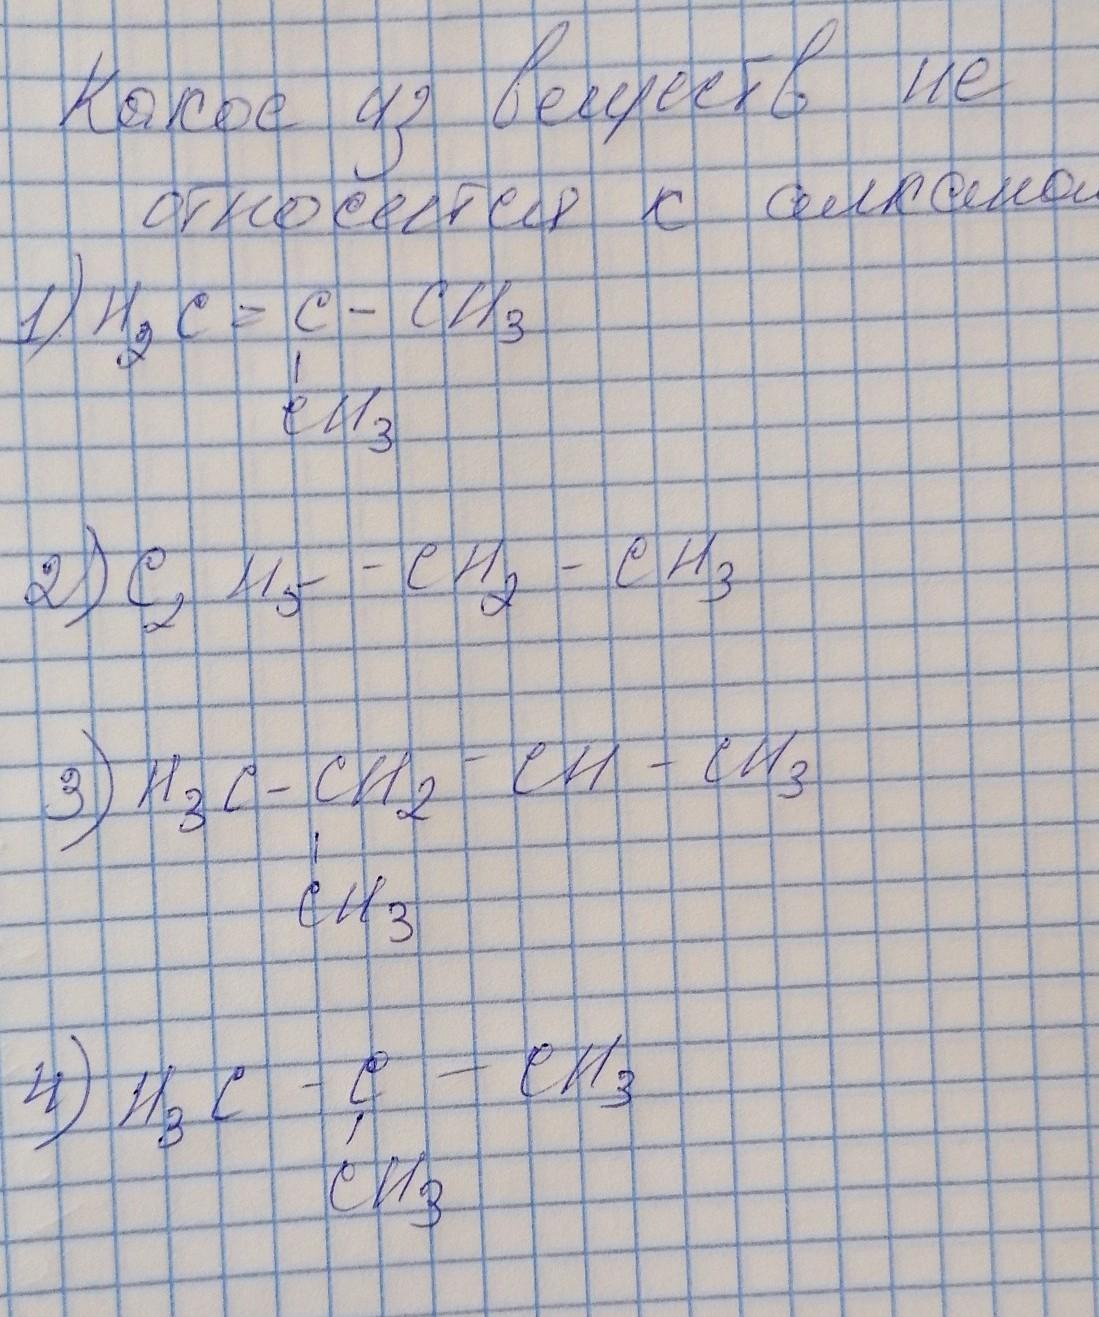 Какое из веществ не
относится к алкана
1) H₂C = C - CH₃
CH₃
2) C₂ H₅ - CH₂ - CH₃
3) H₃C - CH₂ - CH - CH₃
CH₃
4) H₃C - C - CH₃
CH₃